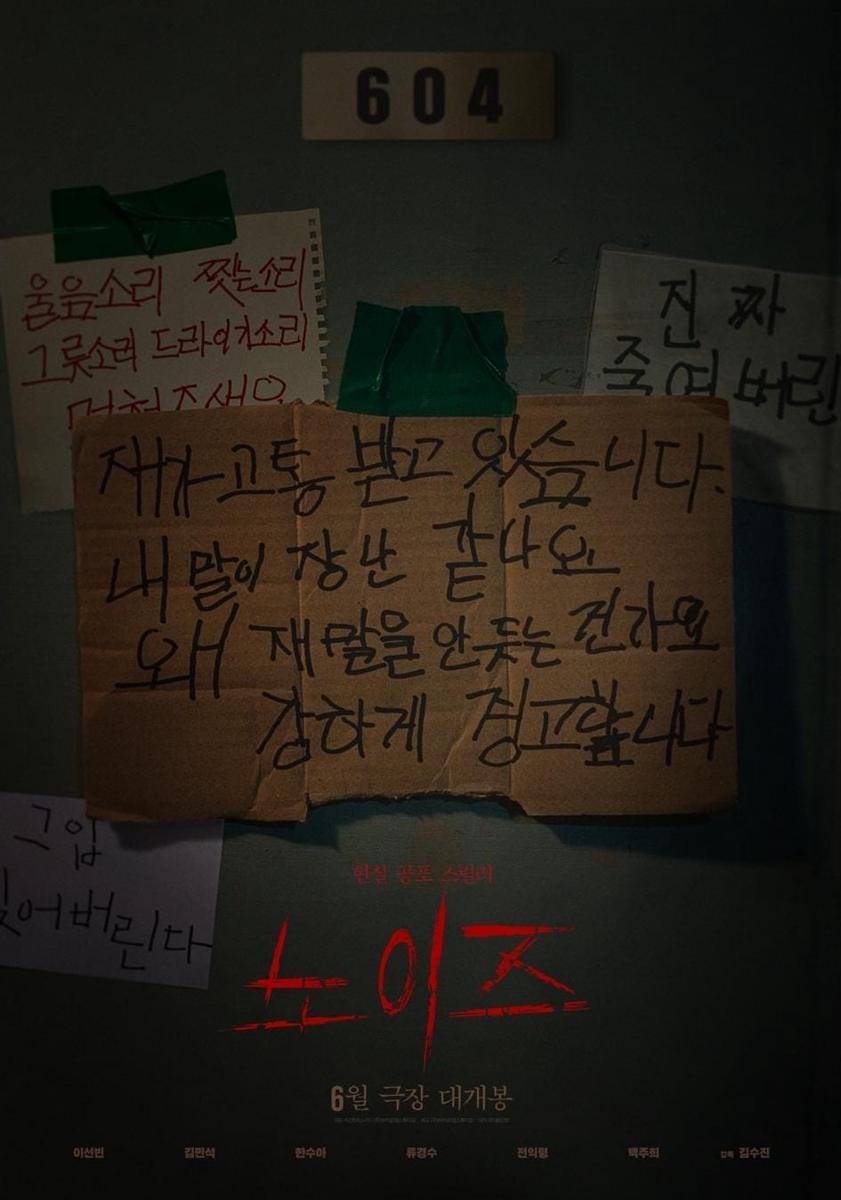 604
울음소리 찢는소리
그릇소리 드라이기소리
진짜
죽여버린
재가 고통 받고 있습니다.
내 말이 장난 같나요
왜 재 말을 안듣는 건가요
강하게 경고합니다
그 입
찢어버린다
현실 공포 스릴러
노이즈
6월 극장 대개봉
이선빈 김민석 한수아 류경수 전익령 백주희 감독 김수진